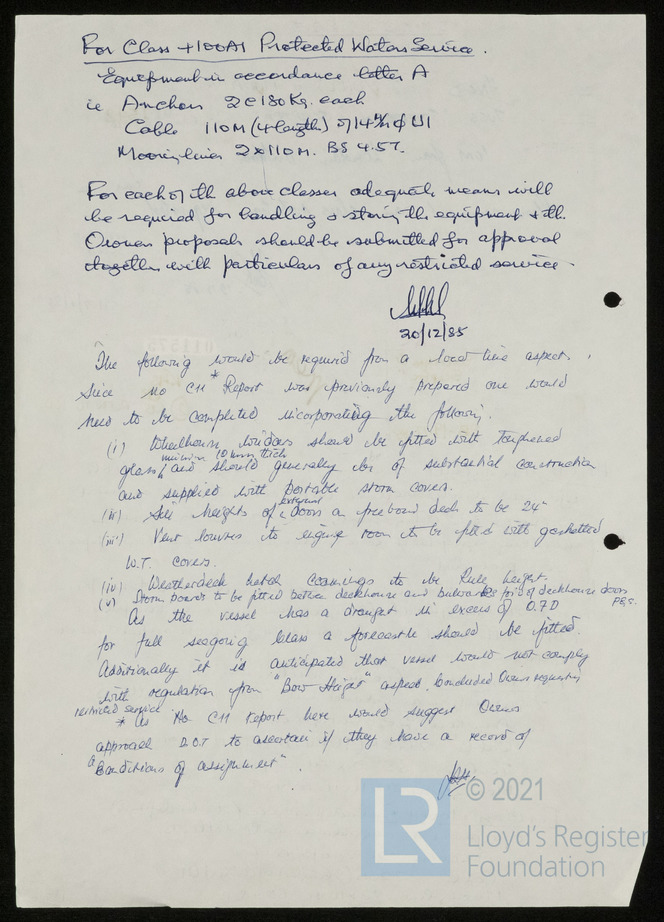 For Class +100A1 Protected Waters Service.
Equipment in accordance letter A
ie Anchors 2 @ 180Kg. each
Cable 110M (4 lengths) of 14 M/M φ U1
Mooring lines 2x110M. BS 4.5T.
For each of th above classes adequate means will
be required for handling & storing th equipment & th.
Owners proposals should be submitted for approval
together with particulars of any restricted service.
20/12/85
The following would be required from a load line aspect.
Since no C11* Report was previously prepared one would
need to be completed incorporating the following.
(i) Wheelhouse windows should be fitted with toughened
minimum 10mm thick
glass, and should generally be of substantial construction
and supplied with portable storm covers.
external
(ii) Sill heights of doors on freeboard deck to be 24"
(iii) Vent louvres to engine room to be fitted with gasketted
W.T. covers.
(iv) Weatherdeck hatch coamings to be Rule height.
(v) Storm boards to be fitted between deckhouse and bulwarks of deckhouse doors
P&S.
As the vessel has a draught in excess of 0.7D
for full seagoing class a forecastle should be fitted.
Additionally it is anticipated that vessel would not comply
with regulation from "Bow Height" aspect. Concluded Owners requesting
restricted service
* As No C11 Report here would suggest Owners
approach D.O.T to ascertain if they have a record of
"Conditions of assignment".
LR
© 2021
Lloyd's Register
Foundation